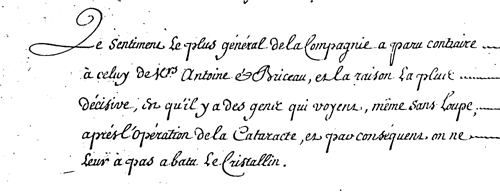 Le sentiment le plus général de la Compagnie a paru contraire
à celuy de Mrs Antoine & Briceau, et la raison la plus
décisive, est qu'il y a des gens qui voyent, même sans Loupe,
après l'opération de la Cataracte, et par conséquent on ne
leur à pas abatu le Cristallin.